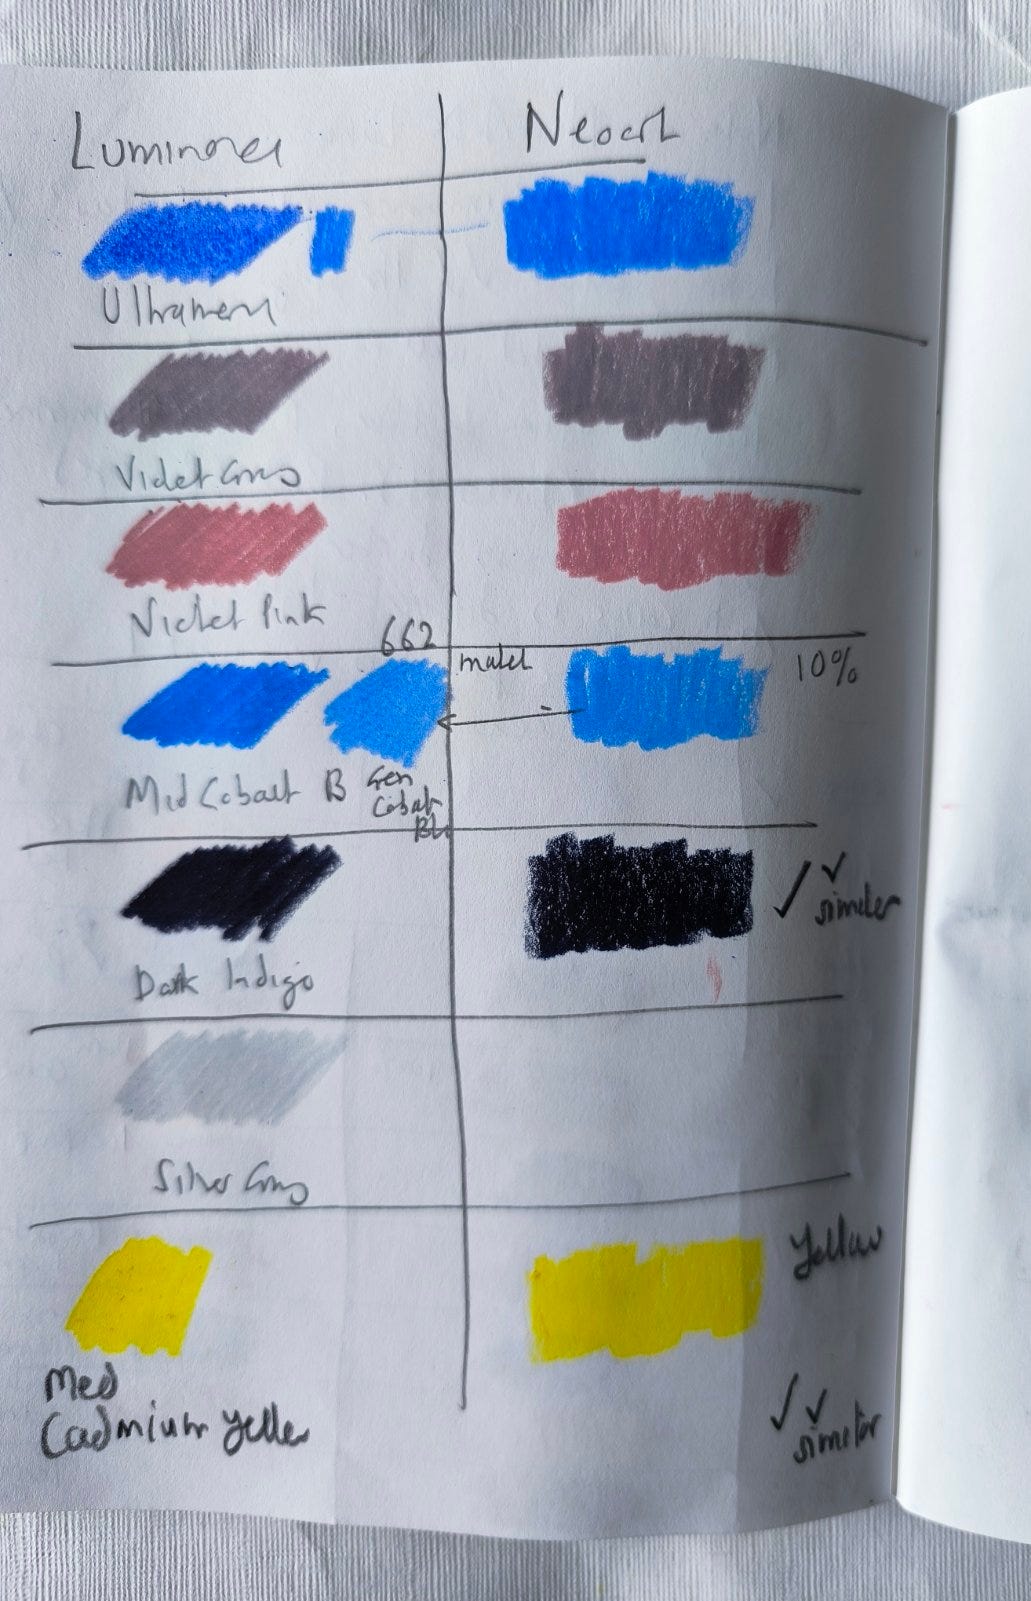 Luminance
Neoart
Ultramari
Violet Grey
Violet Pink
662
match
10%
Mid Cobalt B
Gen
Cobalt
Bl
Dark Indigo
simeler
Silver Grey
Yellow
Med
Cadmium yelle
simelar